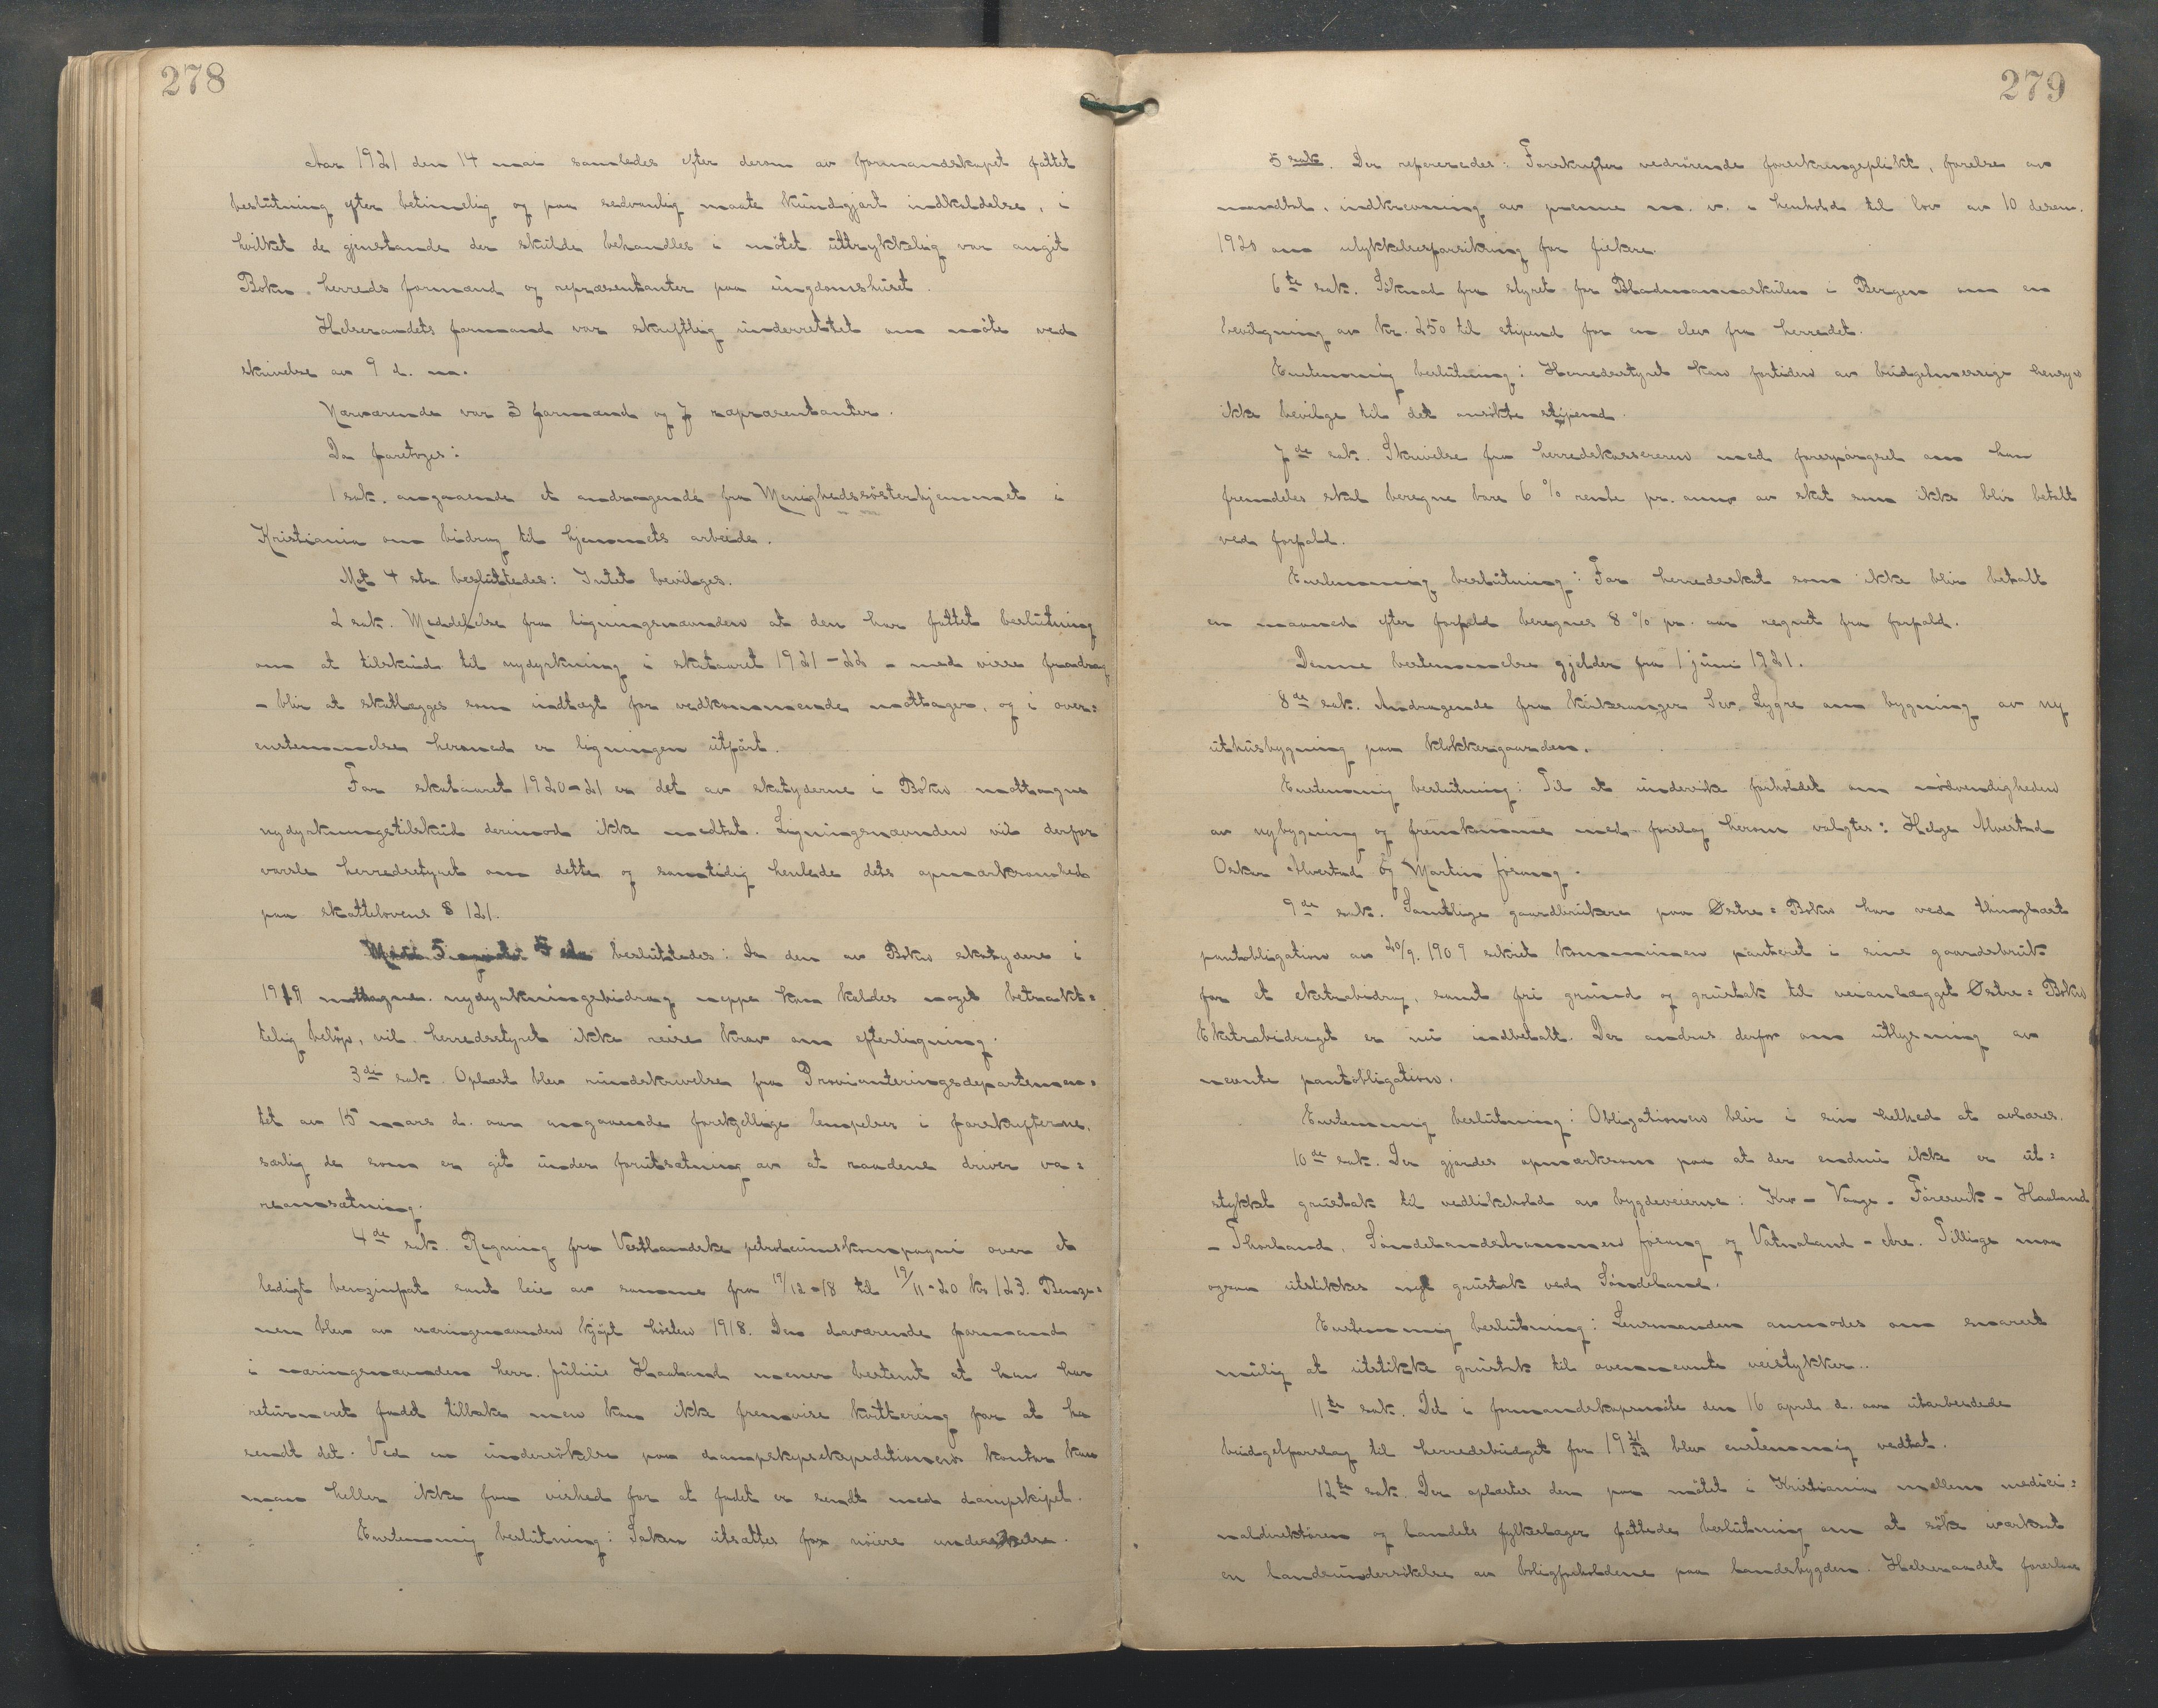 278
Aar 1921 den 14 mai samledes efter derom av formandskapet fattet
beslutning efter betimelig og paa sedvanlig maate kundgjort indkaldelse, i
hvilket de gjenstande der skulde behandles i møtet uttrykkelig var angit
Bokn herreds formænd og repræsentanter paa ungdomshuset.
Helseraadets formand var skriftlig underrettet om møte ved
skrivelse av 9 d. m.
Nærværende var 3 formænd og 7 repræsentanter.
Da foretoges:
1 sak. angaaende et andragende fra Menighedssøsterhjemmet i
Kristiania om bidrag til hjemmets arbeide.
Mot 4 str. besluttedes: Intet bevilges.
2 sak. Meddelelse fra ligningsnævnden at den har fattet beslutning
om at tilskud til nydyrkning i skataaret 1921-22 - med visse fradrag
- blir at skatlægges som indtægt for vedkommende mottager, og i over=
enstemmelse hermed er ligningen utført.
For skataaret 1920-21 er det av skatyderne i Bokn mottagne
nydyrkningstilskud derimod ikke medtat. Ligningsnævnden vil derfor
varsle herredsstyret om dette og samtidig henlede dets opmærksomhed
paa skattelovens § 121.
besluttedes: Da den av Bokn skatydere i
1919 mottagne nydyrkningsbidrag neppe kan kaldes noget betrakt=
telig beløp, vil herredsstyret ikke reise krav om efterligning.
3de sak. Oplæst blev rundskrivelse fra Provianteringsdepartemen=
tet av 15 mars d. aar angaaende forskjellige lempelser i forskrifterne,
særlig de som er git under forutsætning av at raadene driver va=
reomsætning.
4de sak. Regning fra Vestlandske petroleumskompagni over et
ledigt benzinfat samt leie av samme fra 19/12-18 til 19/11-20 kr 123. Benzi=
nen blev av næringsnævnden kjøpt høsten 1918. Den daværende formand
i næringsnævnden herr. Julius Haaland mener bestemt at han har
returneret fadet tilbake men kan ikke fremvise kvittering for at ha
sendt det. Ved en undersøkelse paa dampskipsekspeditionens kontor kan
man heller ikke faa vished for at fadet er sendt med dampskipet.
Enstemmig beslutning: Saken utsættes for nøiere undersøkelse.
279
5 sak. Der refereredes: Forskrifter vedrørende forsikringsplikt, førelse av
mandtal, indkrævning av præmie m. v. i henhold til lov av 10 desem.
1920 om ulykkesforsikring for fiskere.
6te sak. Søknad fra styret for Bladmannaskulen i Bergen om en
bevilgning av kr. 250 til stipend for en elev fra herredet.
Enstemmig beslutning: Herredsstyret kan fortiden av budgetmessige hensyn
ikke bevilge til det ansøkte stipend.
7de sak. Skrivelse fra herredskassereren med forespørgsel om han
fremdeles skal beregne bare 6 % rente pr. anno av skat som ikke blir betalt
ved forfald.
Enstemmig beslutning: For herredsskat som ikke blir betalt
en maaned efter forfald beregnes 8 % pr. aar regnet fra forfald.
Denne bestemmelse gjelder fra 1 juni 1921.
8de sak. Andragende fra kirkesanger Sev. Lygre om bygning av ny
uthusbygning paa klokkergaarden.
Enstemmig beslutning: Til at undersøke forholdet om nødvendigheden
av nybygning og fremkomme med forslag herom valgtes: Helge Alvestad
Oskar Alvestad og Martin Jøsang.
9de sak. Samtlige gaardbrukere paa Østre=Bokn har ved thinglæst
pantobligation av 20/9. 1909 sikret kommunen panteret i sine gaardsbruk
for et ekstrabidrag, samt fri grund og grustak til veianlægget Østre=Bokn
Ekstrabidraget er nu indbetalt. Der andras derfor om utlysning av
nevnte pantobligation.
Enstemmig beslutning: Obligationen blir i sin helhed at avlæses.
10de sak. Der gjordes opmærksom paa at der endnu ikke er ut=
stykket grustak til vedlikehold av bygdeveierne: Kro - Vage - Føresvik - Haaland
- Thorland, Søndelandshammen Jøsang og Vatnaland - Are. Tillige maa
ogsaa utstikkes nyt grustak ved Søndeland.
Enstemmig beslutning: Lensmanden anmodes om snarest
mulig at utstikke grustak til ovennevnte veistykker.
11te sak. Det i formandskapsmøte den 16 april d. aar utarbeidede
budgetforslag til herredsbudget for 1921/22 blev enstemmig vedtat.
12te sak. Der oplæstes den paa møtet i Kristiania mellem medici=
naldirektøren og landets fylkeslæger fattede beslutning om at søke iværksat
en landsundersøkelse av boligforholdene paa landsbygden. Helseraadet foreslaar